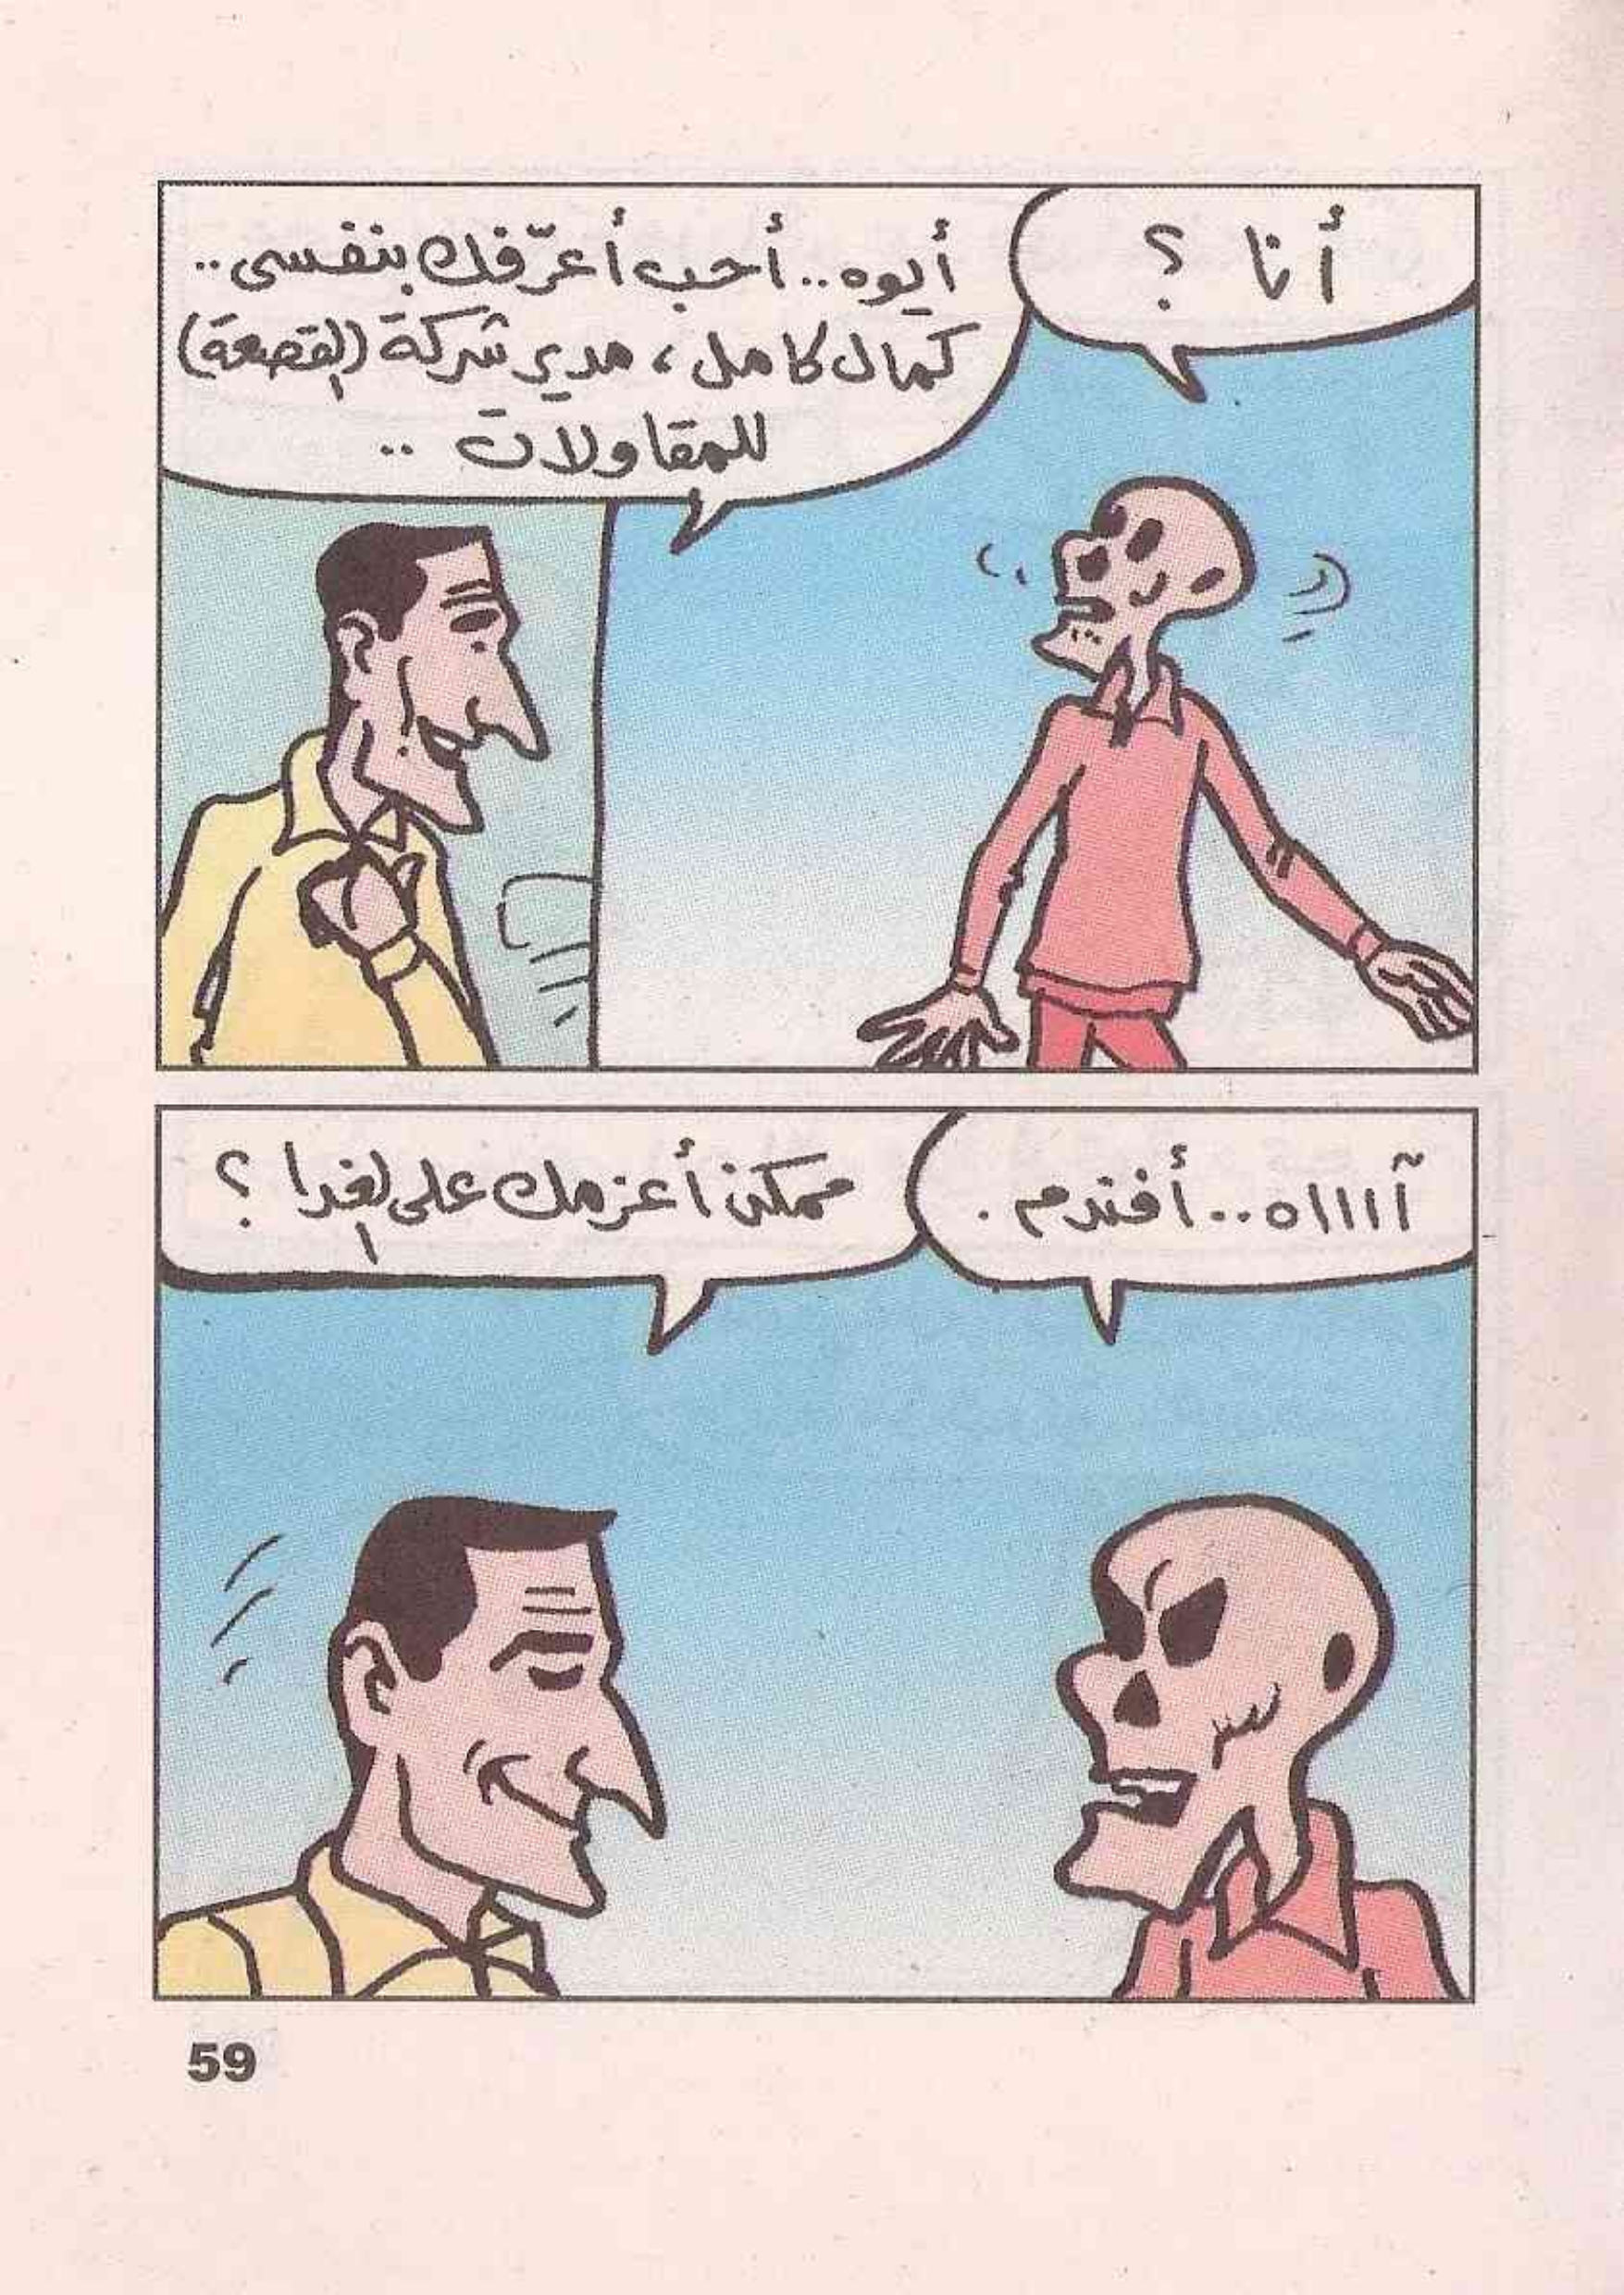 أنا ؟
أيوه.. أحب أعرّفك بنفسى..
كمال كامل، مدير شركة (القصعة)
للمقاولات ..
آااااه.. أفندم.
ممكن أعزمك على الغدا ؟
59